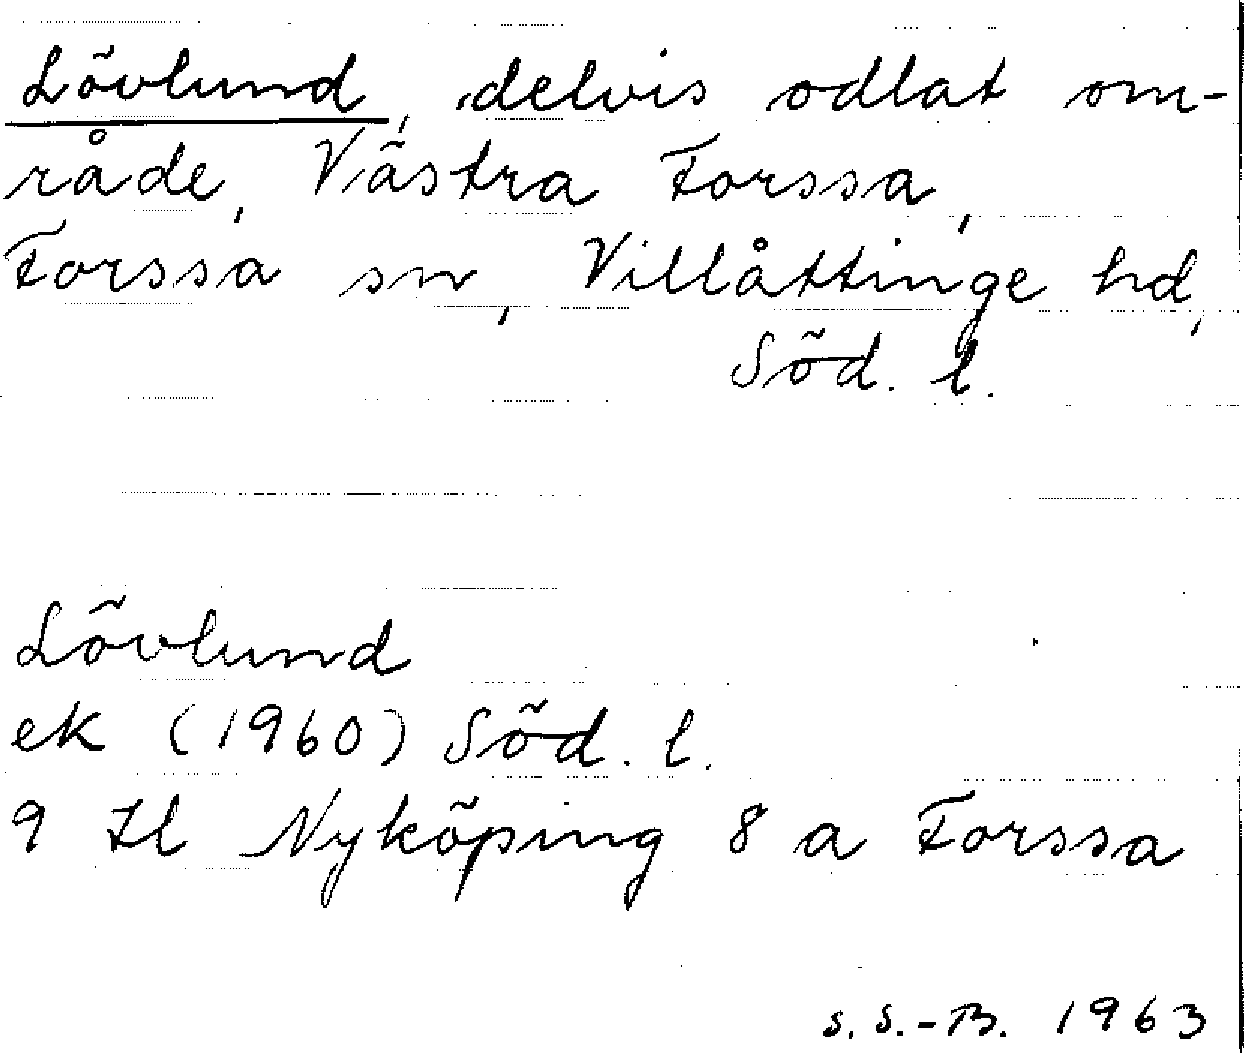 Lövlund, delvis odlat om-
råde, Västra Forssa,
Forssa sn, Villåttinge hd,
Söd. l.
Lövlund
ek (1960) Söd. l.
9 H l Nyköping 8 a Forssa
S. S.-B. 1963